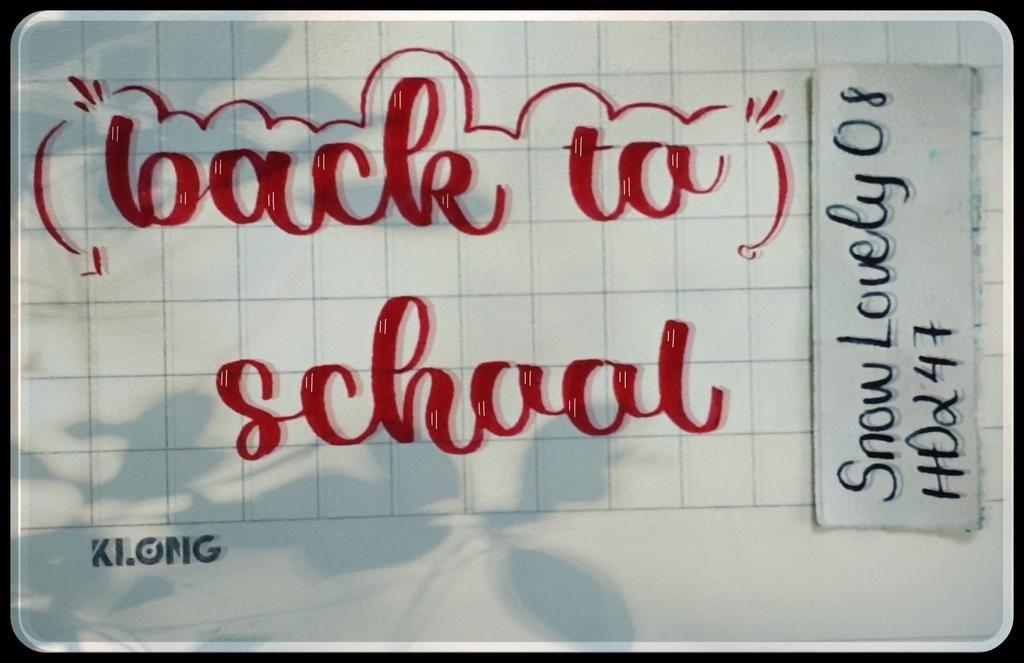 back to
school
KLONG
Snow Lovely 08
HDα247